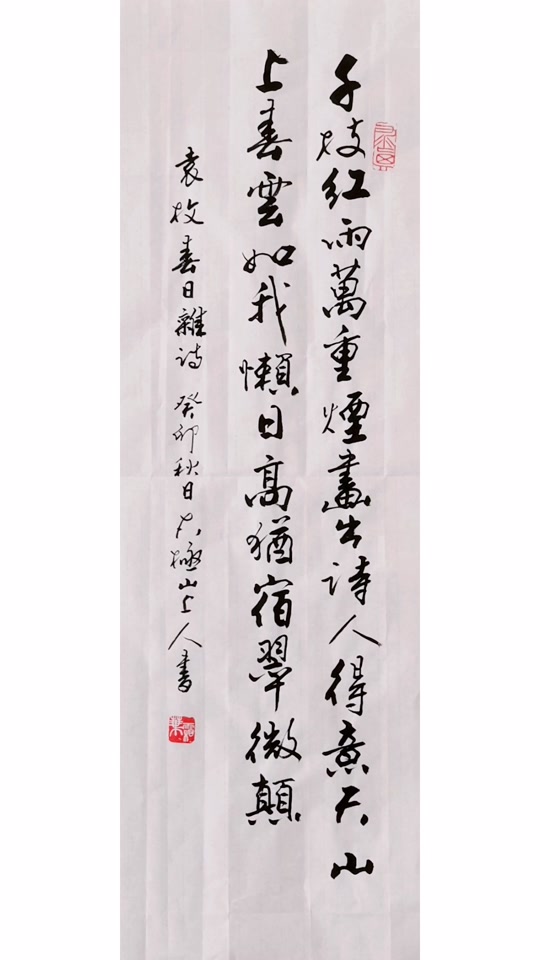 千枝紅雨萬重煙畫出詩人得意天山
上春雲如我懶日高猶宿翠微顛
袁枚春日雜诗 癸卯秋日太極山上人書